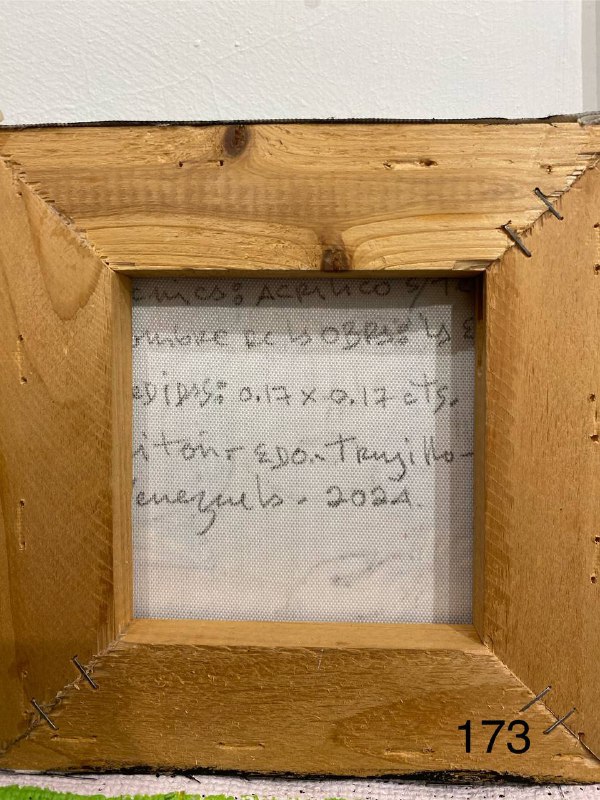 ecnica: Acrilico s/Te
ombre de la OBRA: la E
edidas: 0.17 x 0.17 cts.
itón - EDO. Trujillo -
Venezuela - 2021.
173